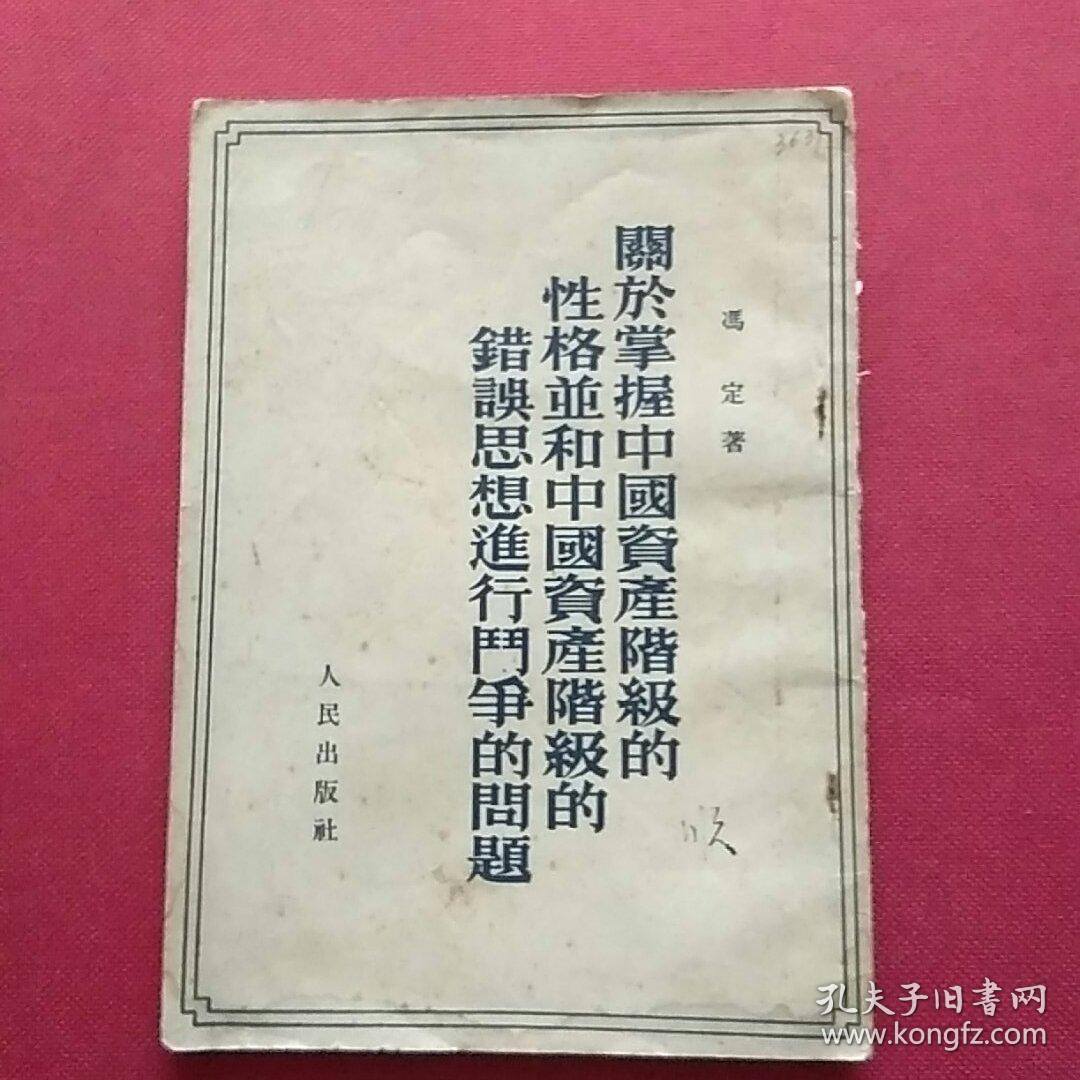 363
馮定著
關於掌握中國資產階級的
性格並和中國資產階級的
錯誤思想進行鬥爭的問題
人民出版社
孔夫子旧书网
www.kongfz.com